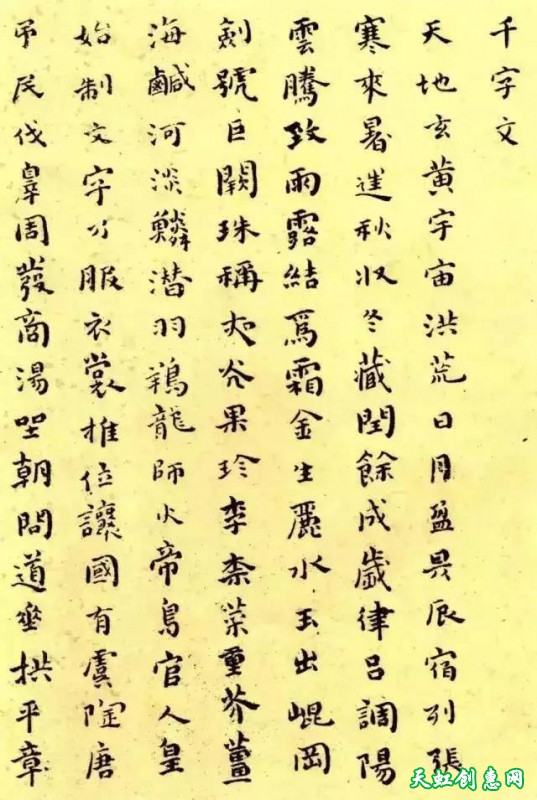 千字文
天地玄黄宇宙洪荒日月盈昃辰宿列張
寒來暑往秋收冬藏閏餘成歲律呂調陽
雲騰致雨露結爲霜金生麗水玉出崐岡
劍號巨闕珠稱夜光果珍李柰菜重芥薑
海鹹河淡鱗潛羽翔龍師火帝鳥官人皇
始制文字乃服衣裳推位讓國有虞陶唐
弔民伐辠周發商湯坐朝問道垂拱平章
天虹创惠网